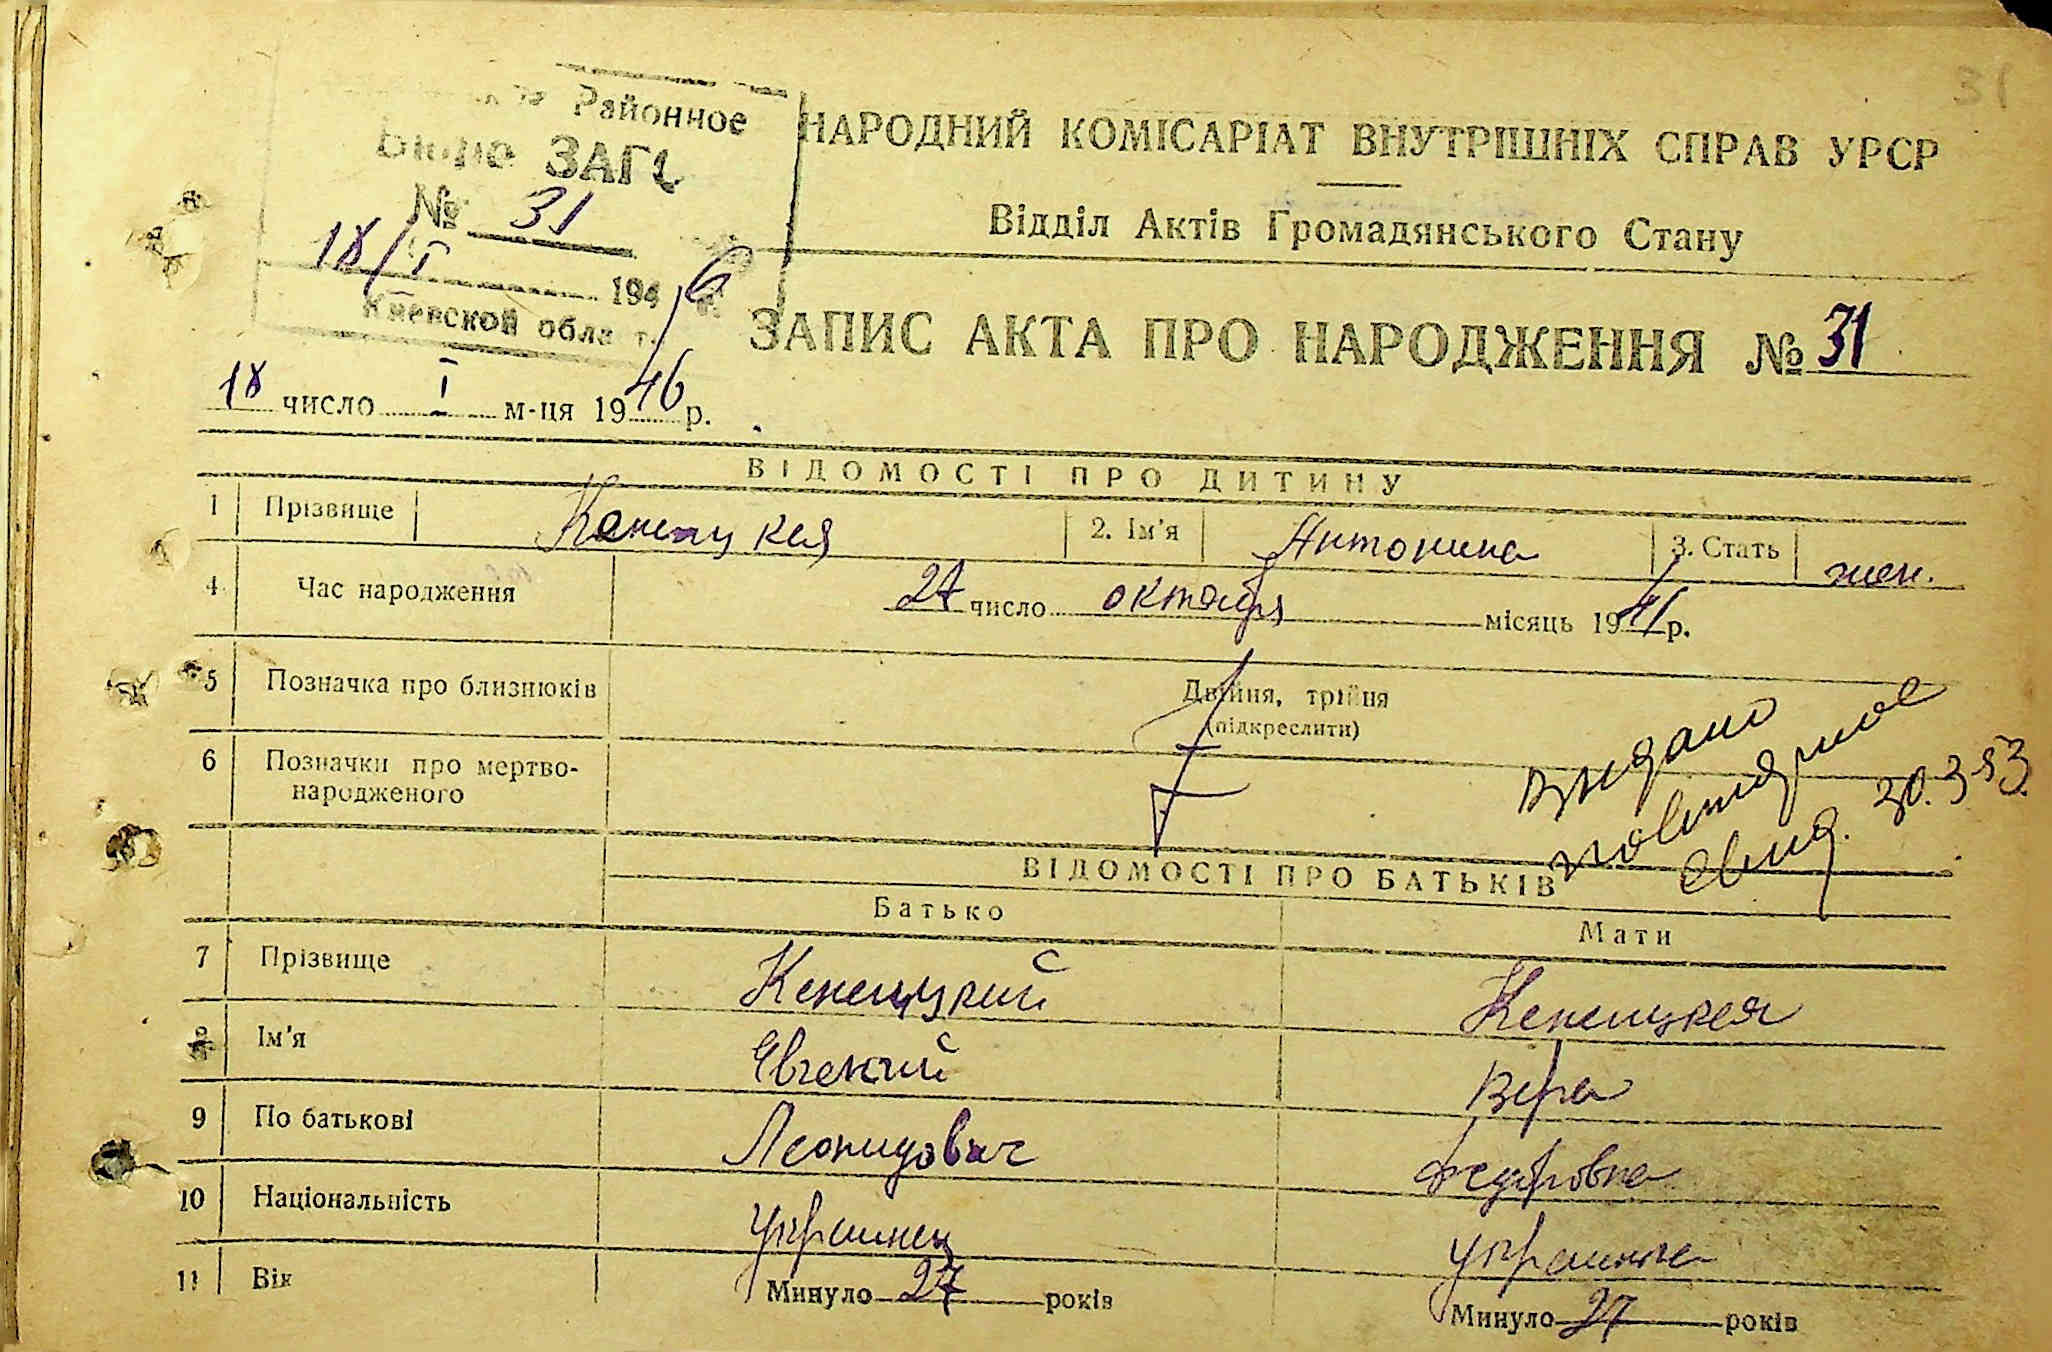 31
Районное
Бюро ЗАГС
№ 31
18/I 1946 г.
Киевской област.
НАРОДНИЙ КОМІСАРІАТ ВНУТРІШНІХ СПРАВ УРСР
Відділ Актів Громадянського Стану
ЗАПИС АКТА ПРО НАРОДЖЕННЯ № 31
18 число I м-ця 1946 р.
ВІДОМОСТІ ПРО ДИТИНУ
1 Прізвище Канецкая 2. Ім'я Антонина 3. Стать жен.
4 Час народження 27 число октября місяць 1941 р.
5 Позначка про близнюків Двійня, трійня
(підкреслити)
6 Позначки про мертво-
народженого
Выдано
повторное
свид. 30.3-53
ВІДОМОСТІ ПРО БАТЬКІВ
Батько Мати
7 Прізвище Канецкий Канецкая
8 Ім'я Евгений Вера
9 По батькові Леонидович Федоровна
10 Національність украинец украинка
11 Вік Минуло 27 років Минуло 27 років